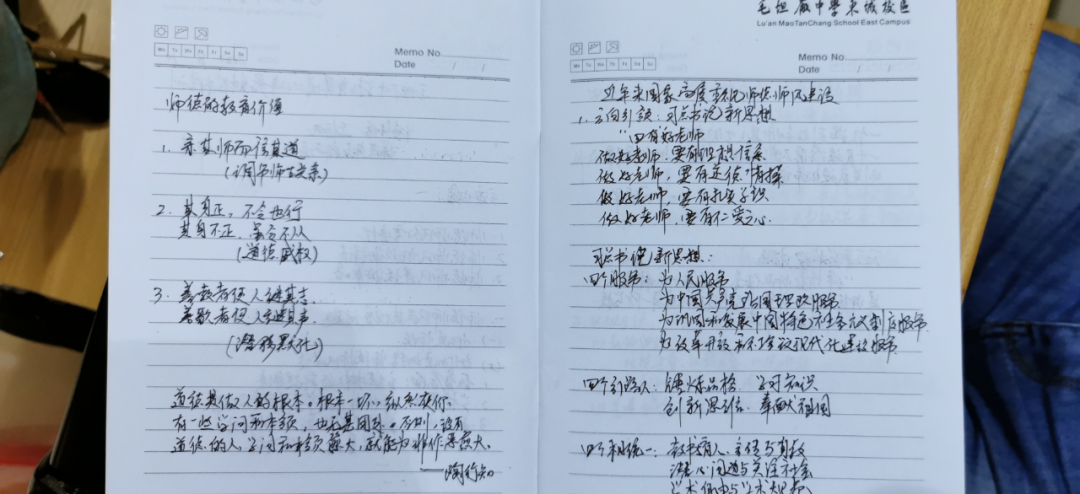 Mo Tu We Th Fr Sa Su
Memo No.
Date / /
师德的教育价值
1. 亲其师而信其道
(调节师生关系)
2. 其身正,不令也行
其身不正,虽令不从
(道德威权)
3. 善教者使人继其志
善歌者使人继其声
(潜移默化)
道德是做人的根本。根本一坏,纵然使你
有一些学问和本领,也无甚用处。否则,没有
道德的人,学问和本领愈大,就能为非作恶愈大。
——陶行知
毛坦厂中学东城校区
Lu'an MaoTanChang School East Campus
Mo Tu We Th Fr Sa Su
Memo No.
Date / /
近年来国家高度重视师德师风建设
1. 方向引领:习总书记新思想
"四有"好老师
做好老师,要有理想信念
做好老师,要有道德情操
做好老师,要有扎实学识
做好老师,要有仁爱之心
习总书记新思想:
四个服务:为人民服务
为中国共产党治国理政服务
为巩固和发展中国特色社会主义制度服务
为改革开放和社会主义现代化建设服务
四个引路人:锤炼品格 学习知识
创新思维 奉献祖国
四个相统一:教书育人、言传与身教
潜心问道与关注社会
学术自由与学术规范